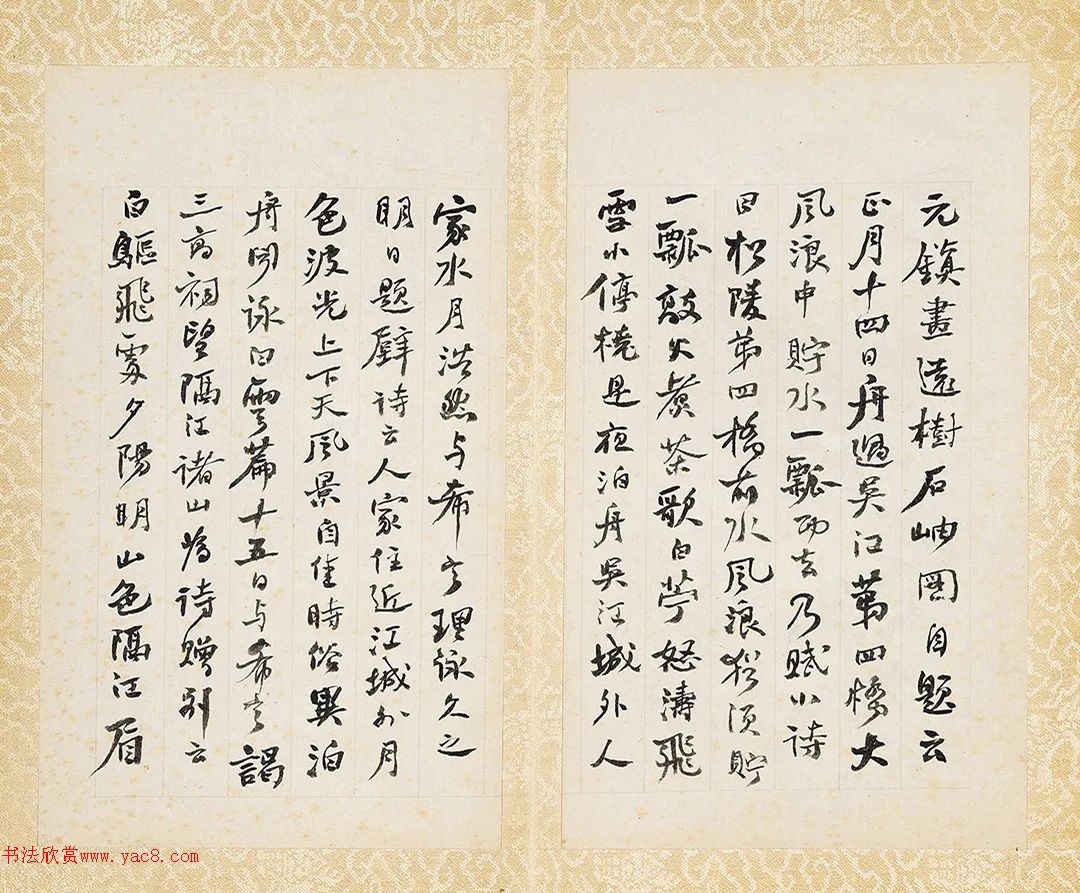 元鎮畫遠樹石岫圖自題云
正月十四日舟過吳江第四橋大
風浪中貯水一瓢而去乃賦小詩
曰松陵第四橋前水風浪猶須貯
一瓢敲火煮茶歌白苧怒濤飛
雪小停橈是夜泊舟吳江城外人
家水月浩然与希言理詠久之
明日題壁詩云人家住近江城外月
色波光上下天風景自佳時俗異泊
舟閒詠白雲篇十五日与希言謁
三高祠望隔江諸山為詩贈別云
白鷗飛處夕陽明山色隔江眉
书法欣赏www.yac8.com